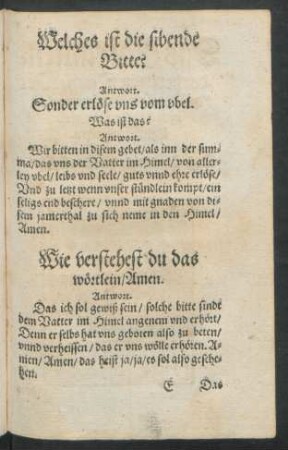 Welches ist die sibende
Bitte?
Antwort.
Sonder erlöse vns vom vbel.
Was ist das?
Antwort.
Wir bitten in disem gebet/als inn der sum-
ma/das vns der Vatter im Himel/von aller-
ley vbel/leibs vnd seele/guts vnnd ehre erlöse/
Vnd zu letzt wenn vnser stündlein kompt/ein
seligs end beschere/vnnd mit gnaden von di-
sem jamerthal zu sich neme in den Himel/
Amen.
Wie verstehest du das
wörtlein/Amen.
Antwort.
Das ich sol gewiß sein/solche bitte sindt
dem Vatter im Himel angenem vnd erhört/
Denn er selbs hat vns geboten also zu beten/
vnnd verheissen/das er vns wölle erhören. A-
men/Amen/das heist ja/ja/es sol also gesche-
hen.
E Das